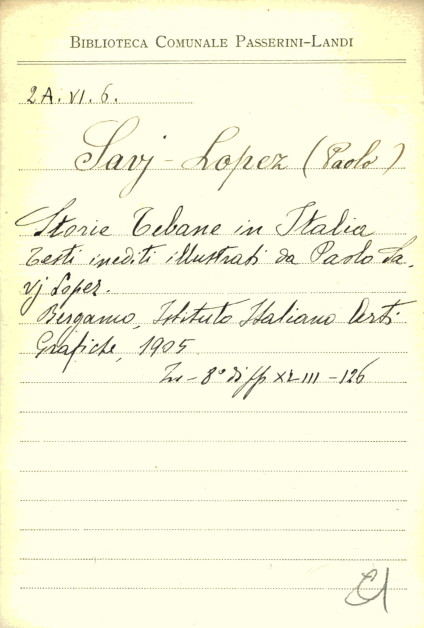 BIBLIOTECA COMUNALE PASSERINI-LANDI
2A.VI.6.
Savj-Lopez (Paolo)
Storie Tebane in Italia
Testi inediti illustrati da Paolo Sa-
vj Lopez.
Bergamo, Istituto Italiano Arti
Grafiche, 1905
In-8° di pp XLIII-126